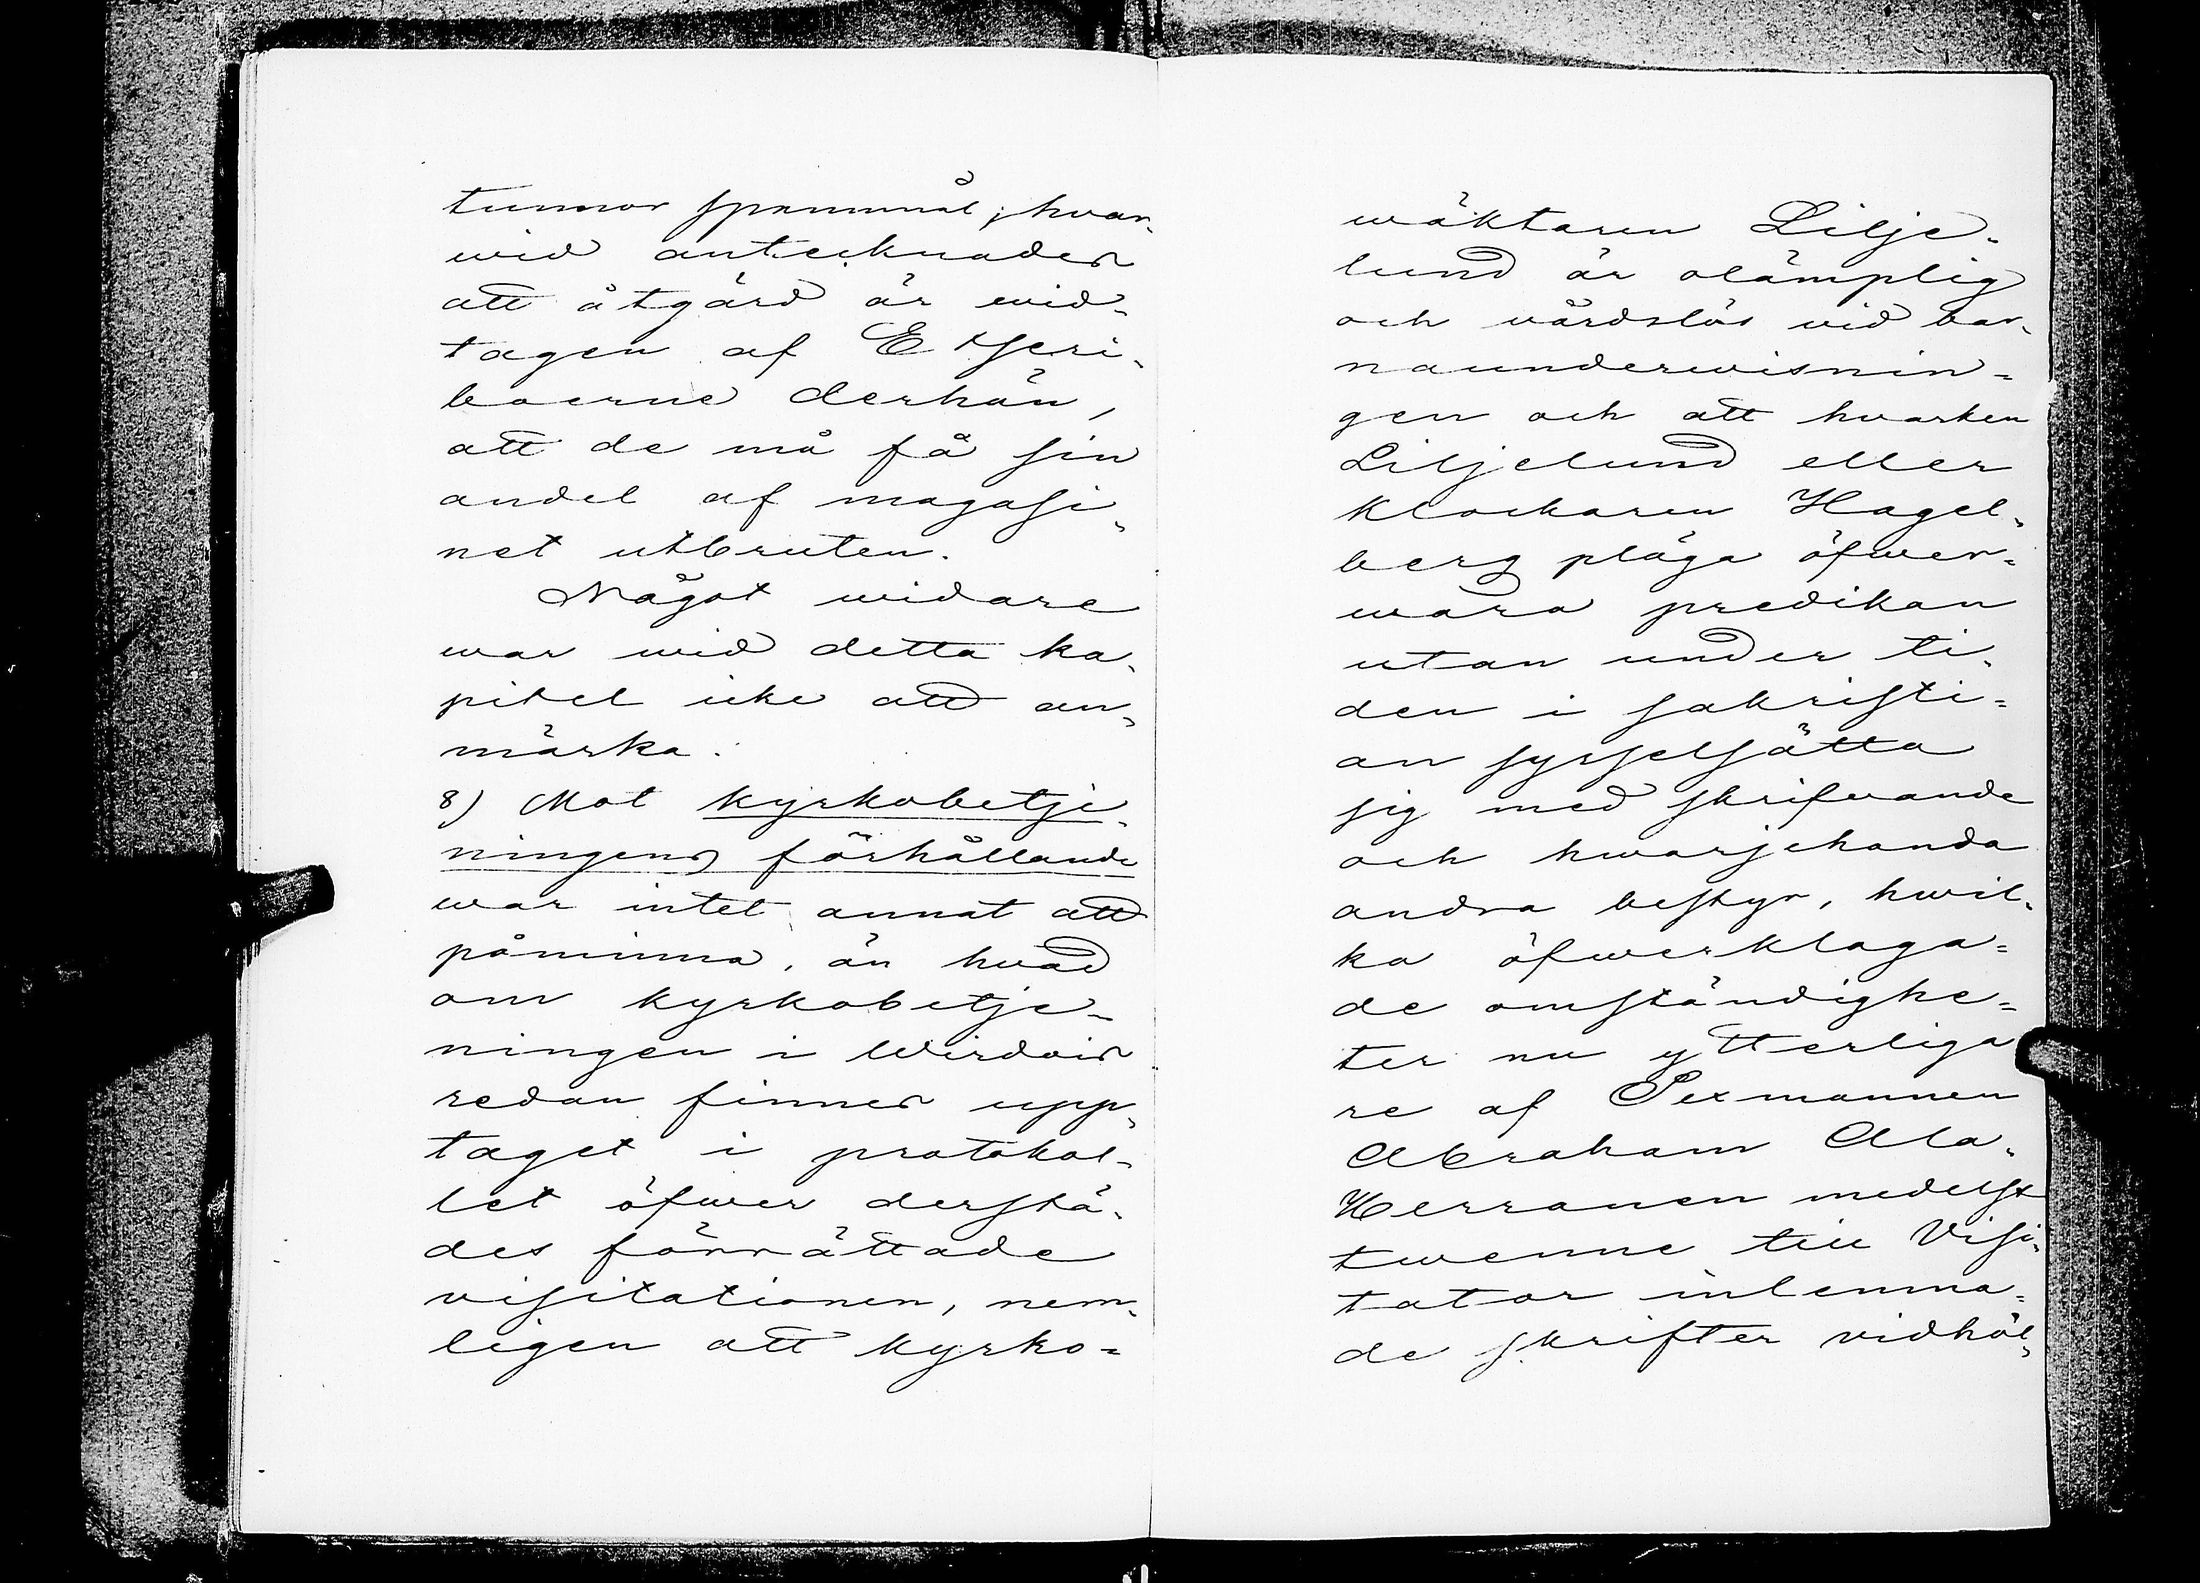 tunnor spannmål; hvar-
wid antecknades
att åtgärd är wid-
tagen af Etseri-
boerne derhän,
att de må få sin
andel af magasi-
net utbruten.
Något widare
war wid detta ka-
pitel icke att an-
märka.
8) Mot kyrkobetje-
ningens förhållande
war intet annat att
påminna, än hvad
om kyrkobetje-
ningen i Wirdois
redan finnes upp-
taget i protokol-
let öfwer derstä-
des förrättade
visitationen, nem-
ligen att kyrko-
wäktaren Lilje-
lund är olämplig
och vårdslös vid bar-
naunderwisnin-
gen och att hvarken
Liljelund eller
Klockaren Hagel-
berg pläga öfwer-
wara predikan
utan under ti-
den i sakristi-
an sysselsätta
sig med skrifvande
och hwarjehanda
andra bestyr, hwil-
ka öfwerklaga-
de omständighe-
ter nu ytterliga-
re af Sexmannen
Abraham Ala-
Herranen medelst
twenne till Visi-
tator inlemna-
de skrifter vidhöl-